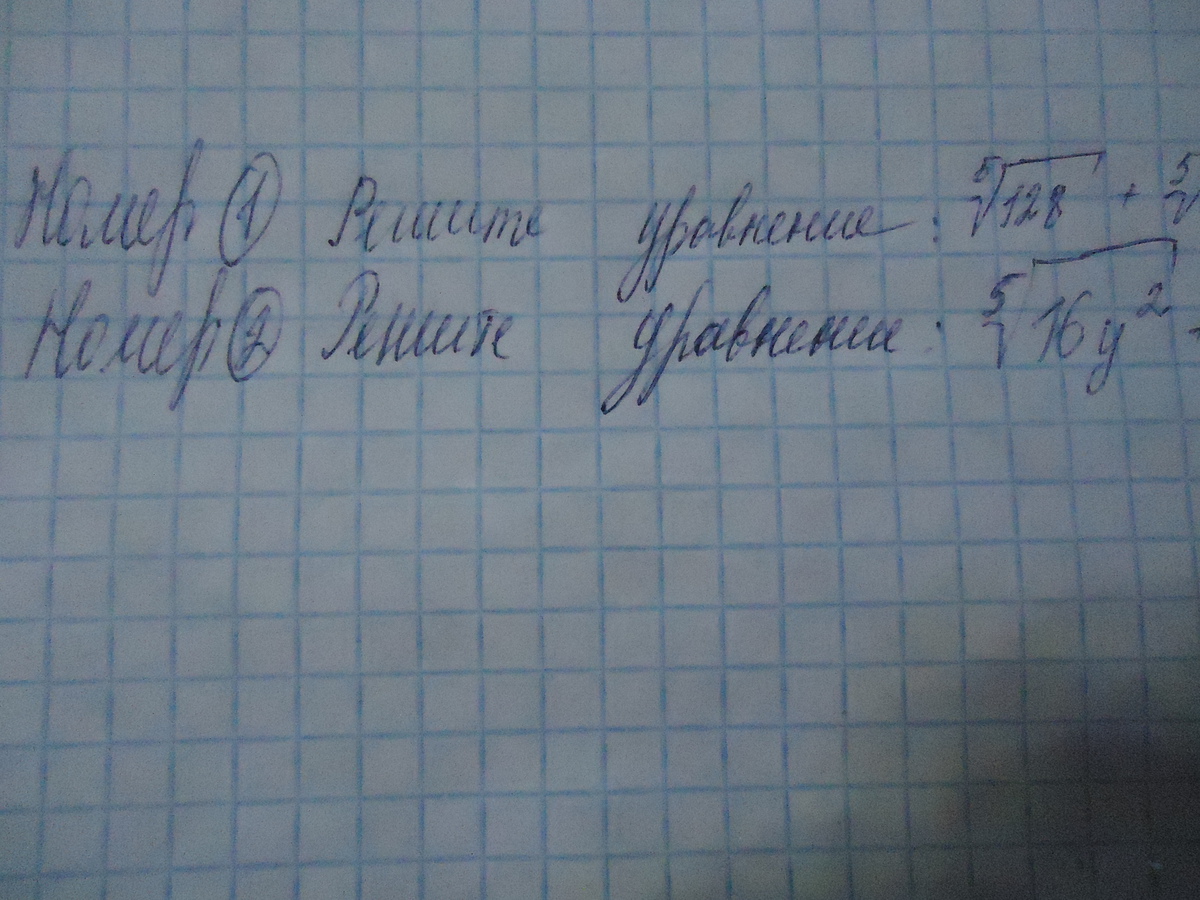 Номер ① Решите уравнение: ⁵√128 + ⁵√
Номер ② Решите уравнение: ⁵√16y²